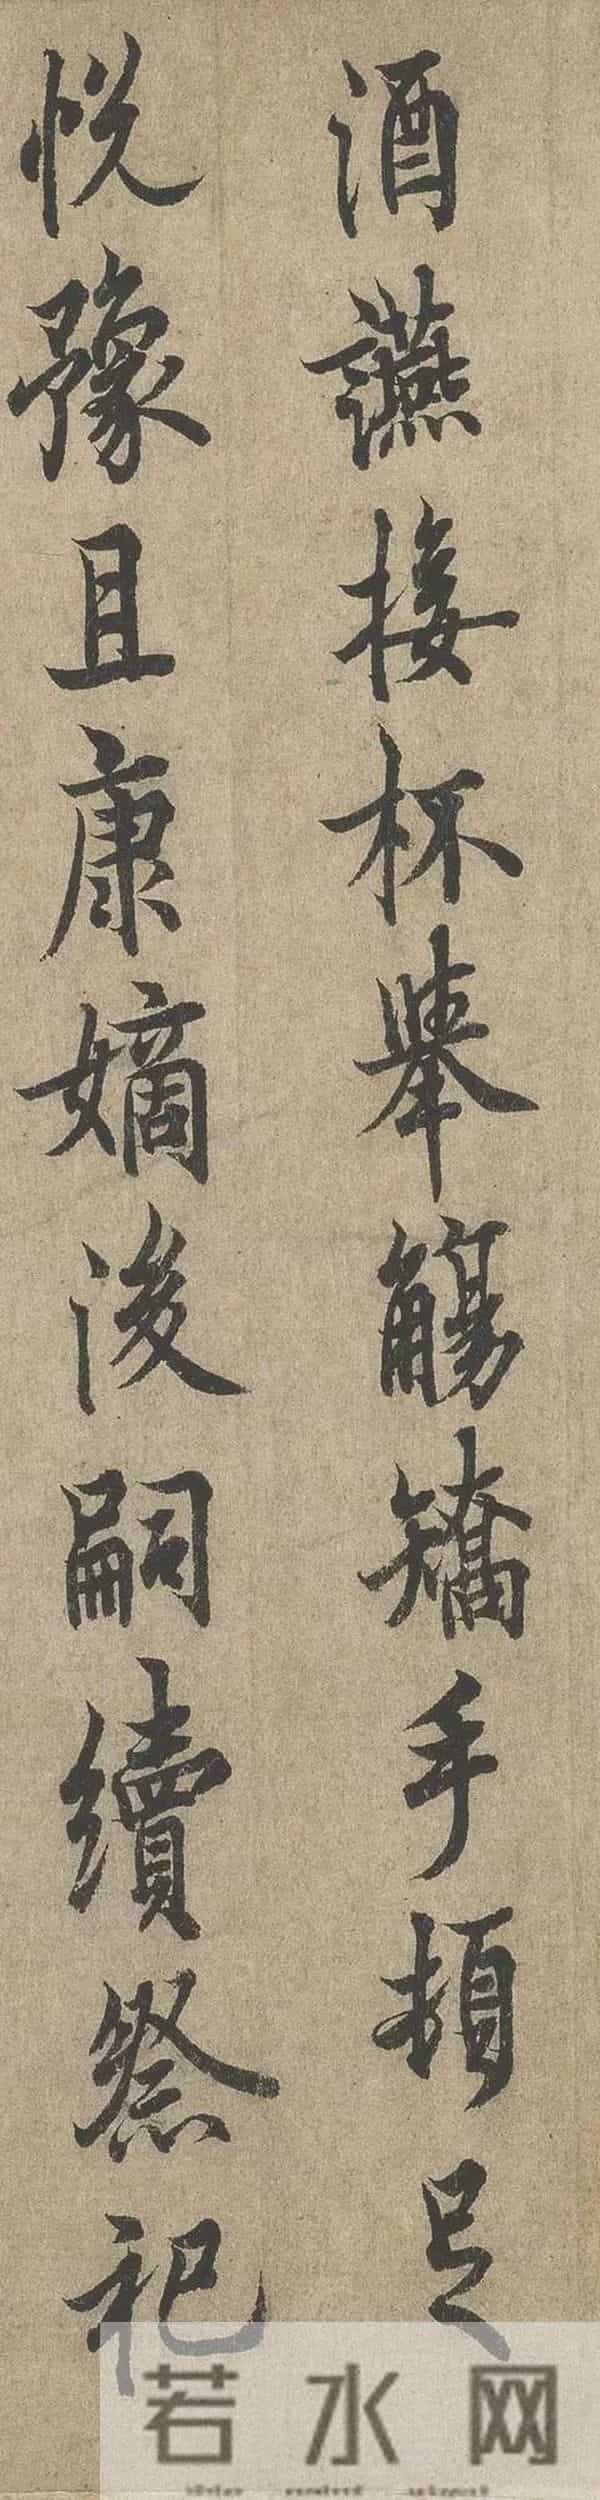 酒讌接杯舉觴矯手頓足
悅豫且康嫡後嗣續祭祀
若水网